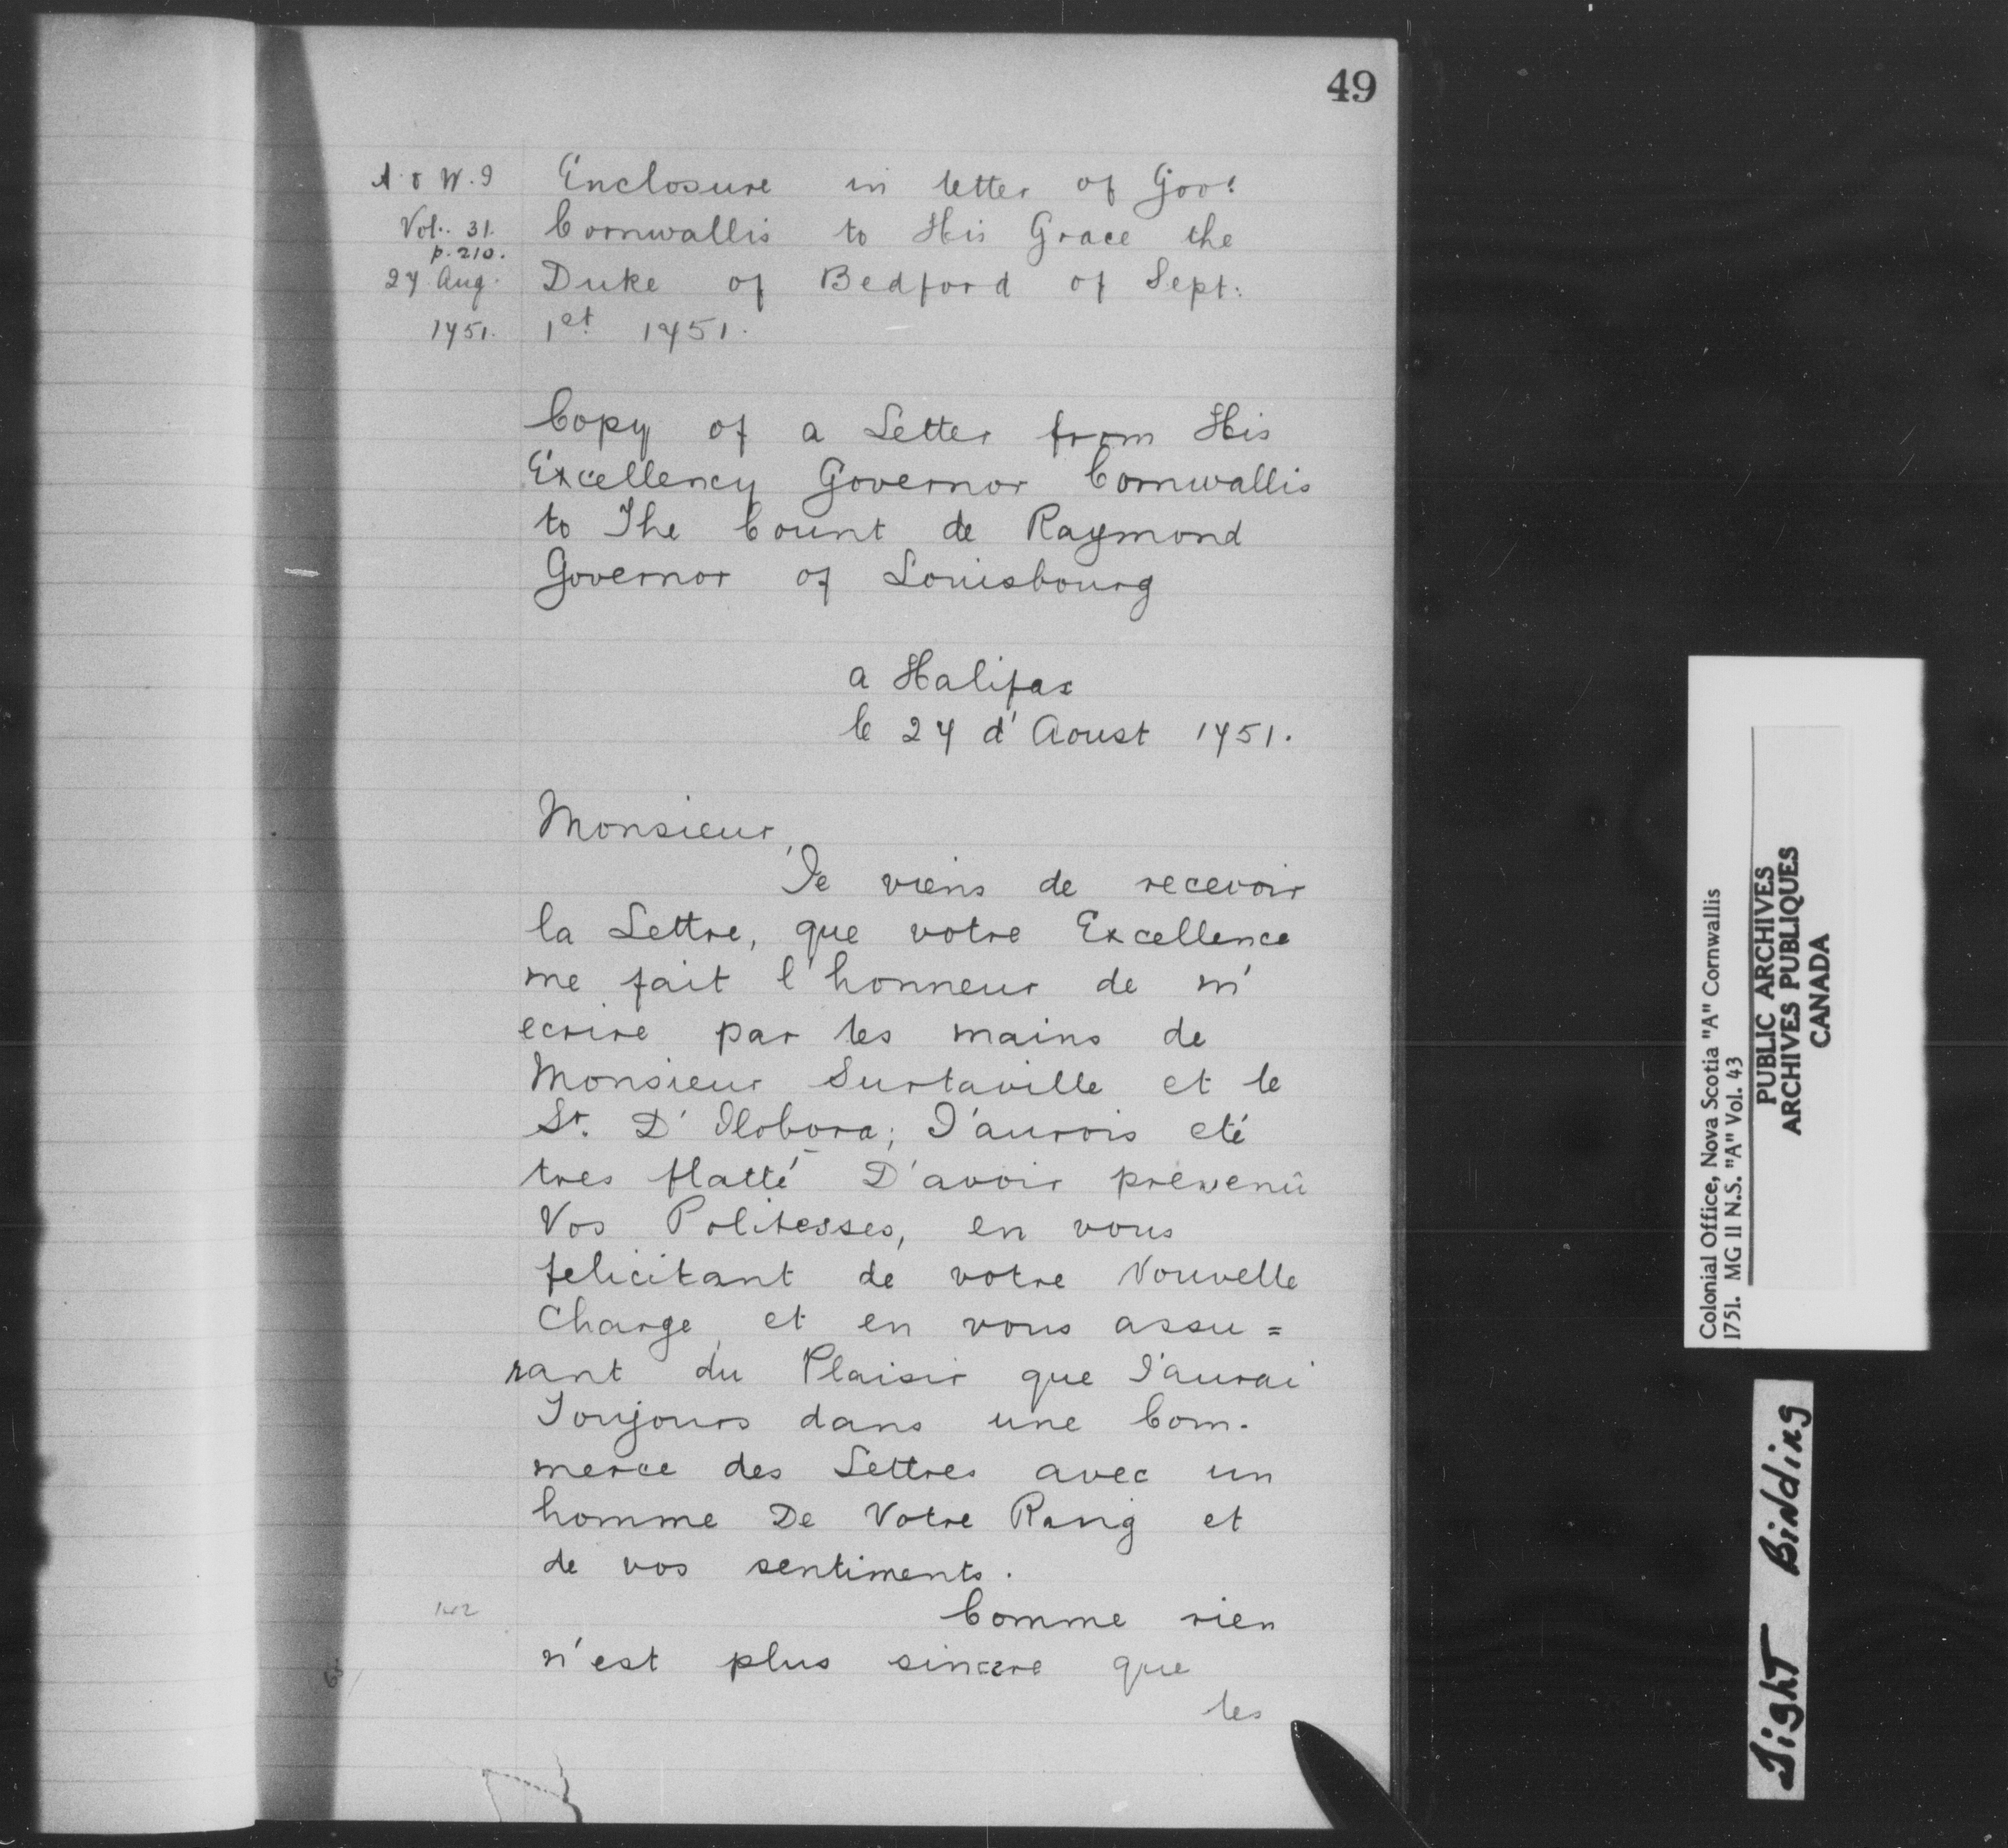 49
A. & W. I
Vol. 31.
p. 210.
27 Aug.
1751.
Enclosure in letter of Govr
Cornwallis to His Grace the
Duke of Bedford of Sept.
1st 1751.
Copy of a Letter from His
Excellency Governor Cornwallis
to The Count de Raymond
Governor of Louisbourg
a Halifax
le 27 d'Aoust 1751.
Monsieur,
Je viens de recevoir
la Lettre, que votre Excellence
me fait l'honneur de m'
ecrire par les mains de
Monsieur Surlaville et le
Sr. D'Ilobora; J'aurois eté
tres flatté D'avoir prevenû
Vos Politesses, en vous
felicitant de votre Nouvelle
Charge, et en vous assu=
rant du Plaisir que J'aurai
Toujours dans une Com-
merce des Lettres avec un
homme De Votre Rang et
de vos sentiments.
Comme rien
n'est plus sincere que
les
142
Colonial Office, Nova Scotia "A" Cornwallis
1751. MG II N.S. "A" Vol. 43
PUBLIC ARCHIVES
ARCHIVES PUBLIQUES
CANADA
Tight Binding